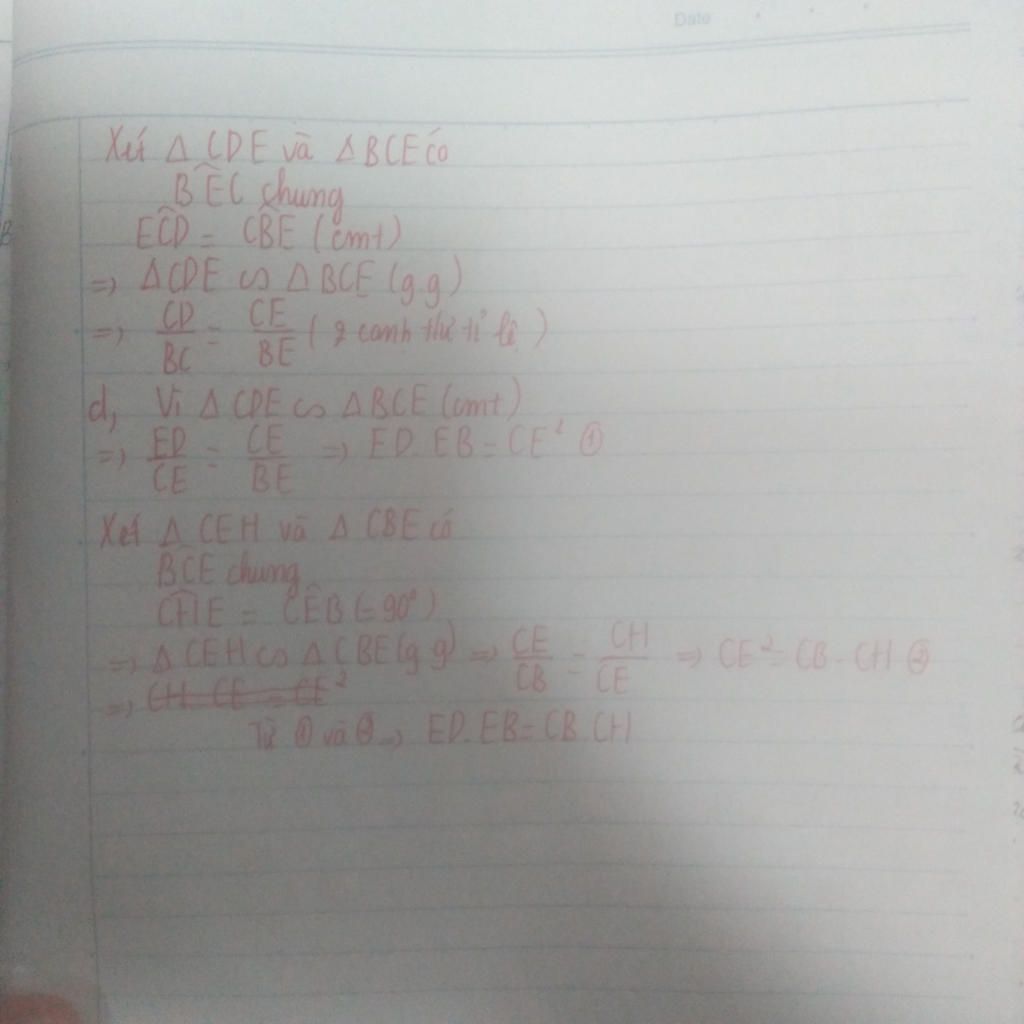 Date
Xét Δ CDE và Δ BCE có
BÊC chung
EĈD = CB̂E (cmt)
=> ΔCDE ∽ Δ BCE (g.g)
=> CD/BC = CE/BE ( 2 cạnh t/ư tỉ lệ )
d, Vì Δ CDE ∽ Δ BCE (cmt)
=> ED/CE = CE/BE => ED.EB = CE² ①
Xét Δ CEH và Δ CBE có
BĈE chung
CĤE = CÊB (=90°)
=> Δ CEH ∽ Δ CBE (g g) => CE/CB = CH/CE => CE² = CB . CH ②
=> CH . CE = CE²
Từ ① và ② => ED.EB = CB.CH